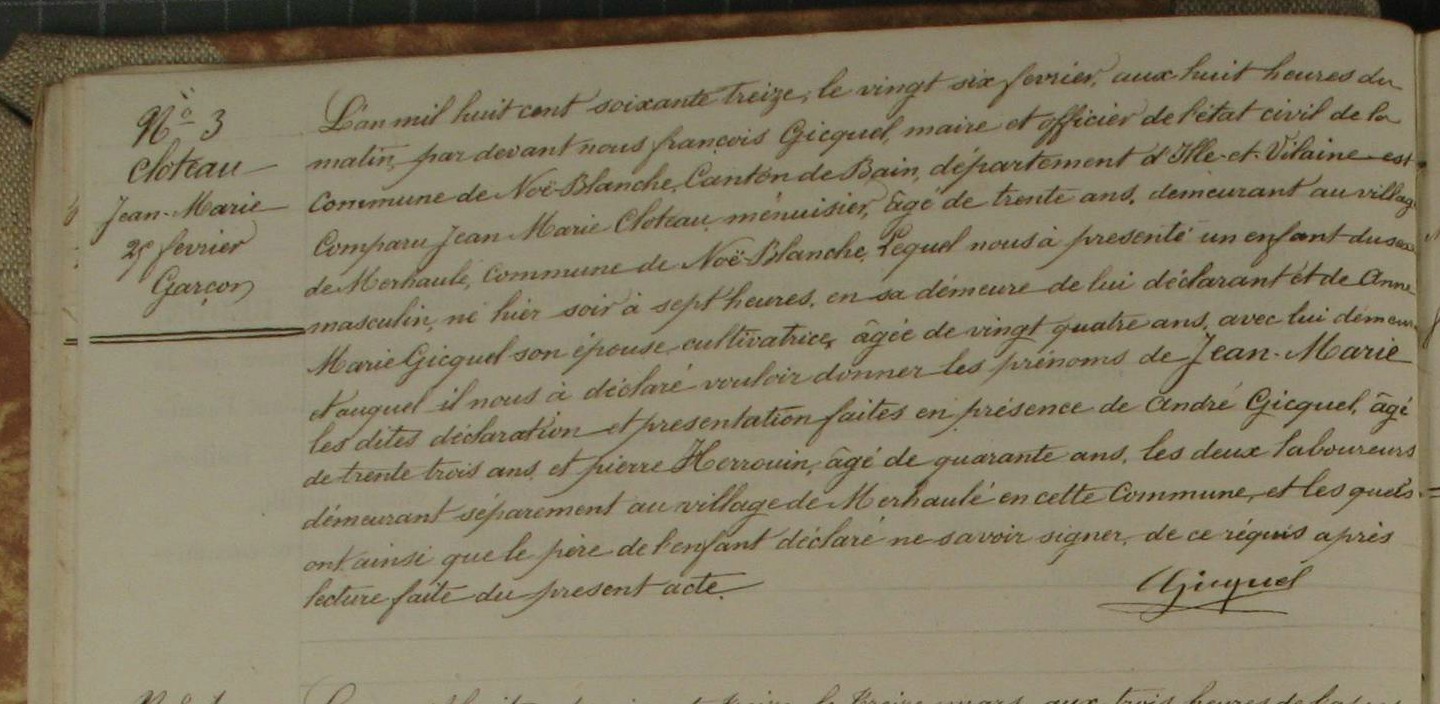 Nº 3
Cloteau
Jean-Marie
25 fevrier
Garçon
L'an mil huit cent soixante treize, le vingt six fevrier, aux huit heures du
matin, par devant nous françois Gicquel, maire et officier de l'état civil de la
Commune de Noë-Blanche, Canton de Bain, département d'Ille-et-Vilaine est
Comparu Jean Marie Cloteau, ménuisier, âgé de trente ans, demeurant au village
de Merhaulé, Commune de Noë-Blanche, Lequel nous à presenté un enfant du sexe
masculin, né hier soir à sept heures, en sa démeure de lui déclarant et de Anne
Marie Gicquel son épouse, cultivatrice, âgée de vingt quatre ans, avec lui démeur
et auquel il nous à déclaré vouloir donner les prénoms de Jean-Marie
les dites déclaration et presentation faites en présence de André Gicquel, âgé
de trente trois ans, et pierre Herrouin, âgé de quarante ans, les deux laboureurs
démeurant séparement au village de Merhaulé en cette Commune, et les quels
ont ainsi que le père de l'enfant déclaré ne savoir signer, de ce réquis après
lecture faite du present acte.
Gicquel